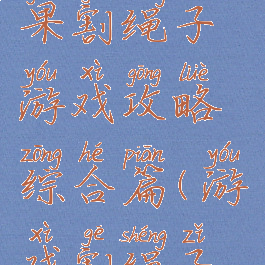 果割绳子
yóu xì gōng lüè
游戏攻略
zōng hé piān yóu
综合篇(游
xì gē shéng zǐ
戏割绳子